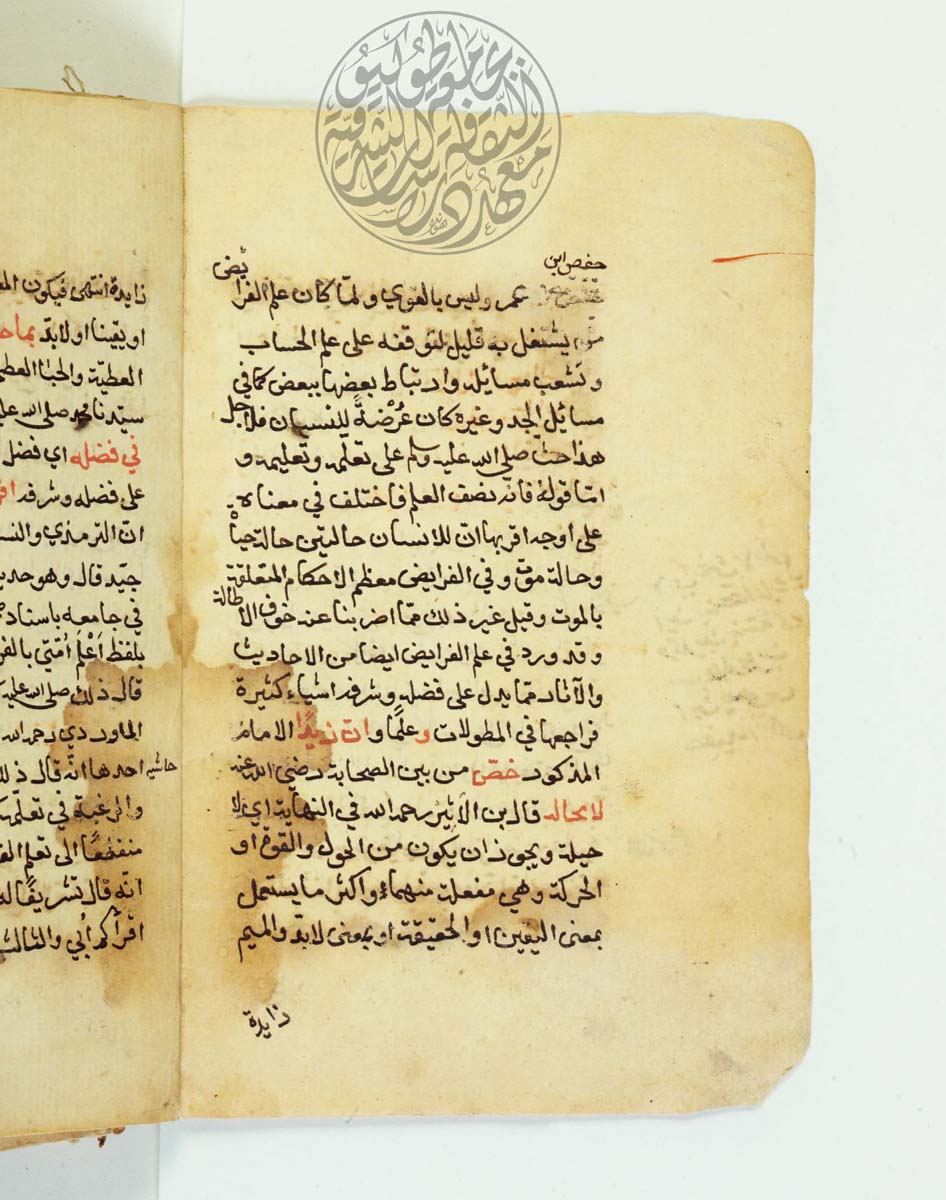 حفص ابن
عمر وليس بالقوي ولمّا كان علم الفرايض
يشتغل به قليل لتوقفه على علم الحساب
وتشعب مسائله وارتباط بعضها ببعض كما في
مسائل الجد وغيره كان عُرْضةً للنسيان فلاجل
هذا حث صلى الله عليه وسلم على تعلّمه وتعليمه و
امّا قولهُ فانّه نصف العلم فاختلف في معناه
على اوجه اقربها انّ للانسان حالتين حالة حياة
وحالة موت وفي الفرايض معظم الاحكام المتعلقة
بالموت وقيل غير ذلك ممّا اضربنا عنه خوف الاطالة
وقد ورد في علم الفرايض ايضا من الاحاديث
والآثار ممّا يدل على فضله وشرفه اشياء كثيرة
فراجعها في المطولات وعلمًا وانّ زيدًا الامام
المذكور خصّ من بين الصحابة رضي الله عنه
لا محاله قال بن الأثير رحمه الله في النهاية اي لا
حيلة ويجوز ان يكون من الحول والقوة او
الحركة وهي مفعلة منهما واكثر ما يستعمل
بمعنى اليقين او الحقيقة او بمعنى لا بدّ والميم
زايدة
زايدة انتهى فيكون
او يقينا او لا بدّ بما
العطيّة والحبا
سيّدنا محمد صلى الله
في فضله اي فضل
على فضله وشرفه
انّ الترمذي
جيّد قال وهو
في جامعه باسناد
بلفظ اَعْلَم اُمّتي
قال ذلك صلى الله
الماوردي رحمه الله
احدها انّه قال
والرغبة في
الى تعلم
انّه قال تشريفًا
اقرأكم اُبي